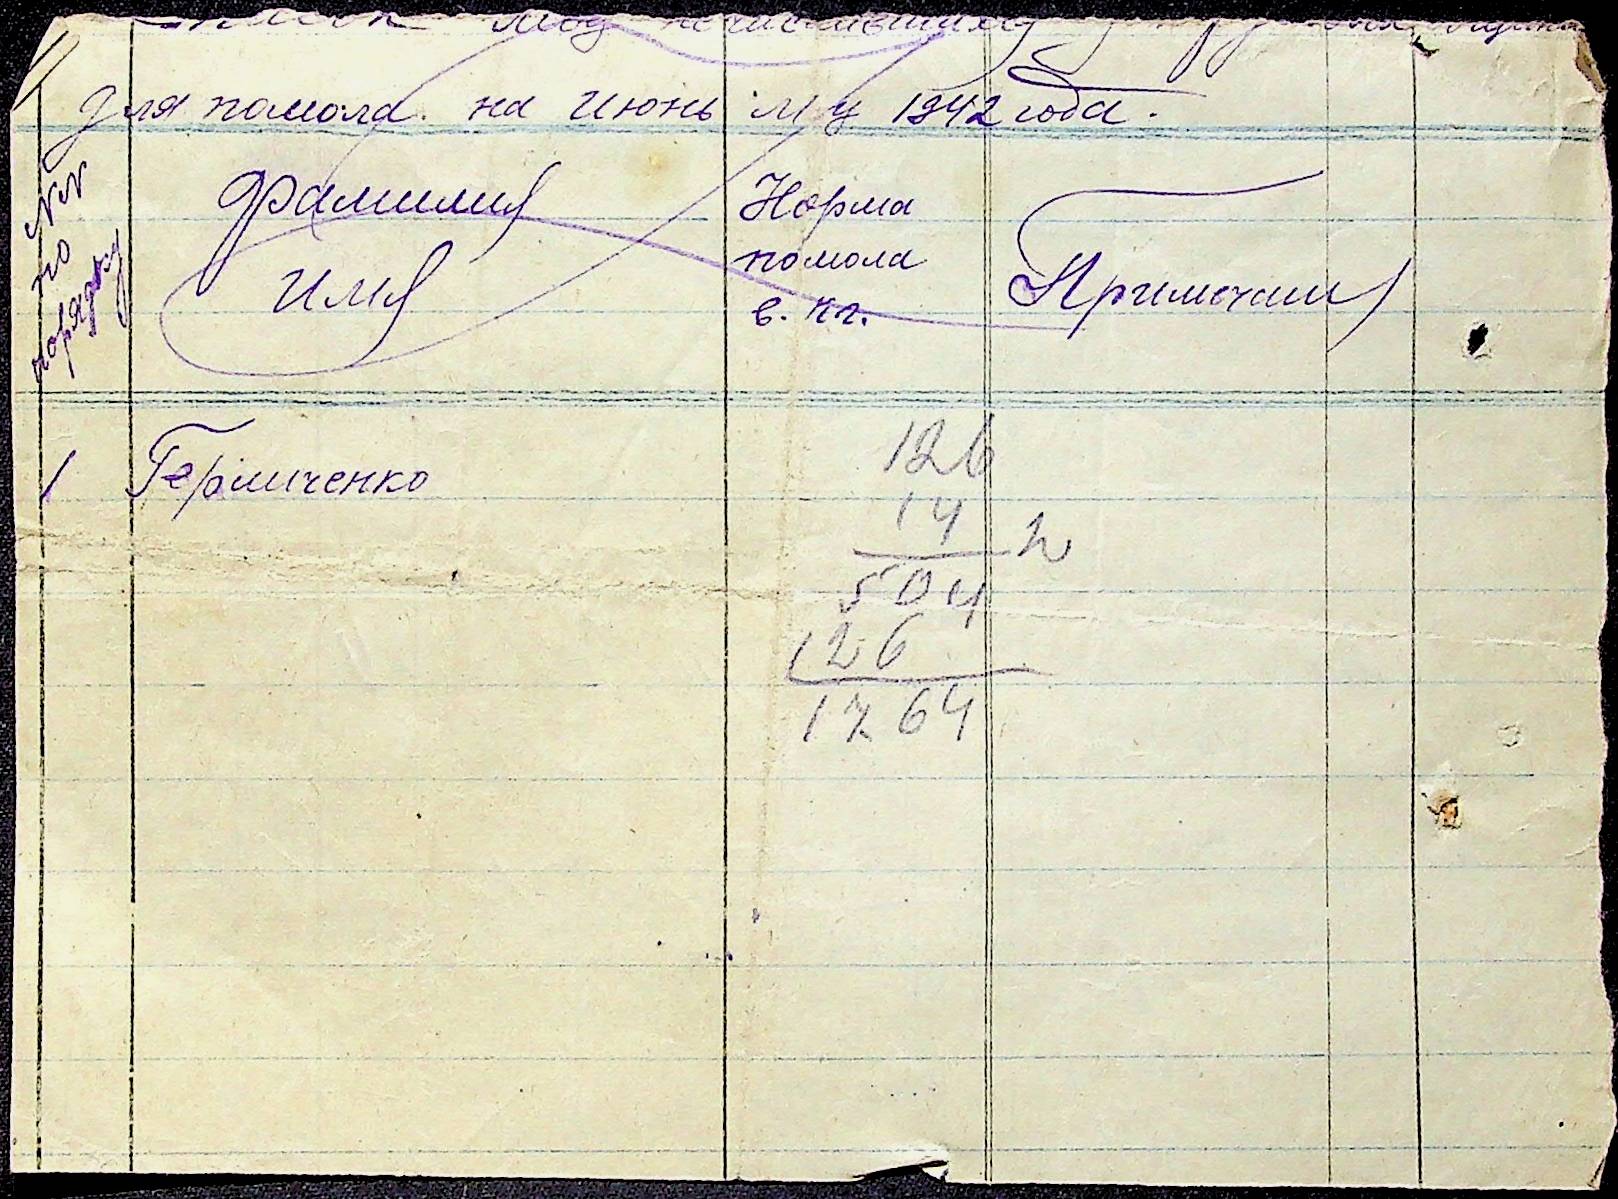 Список
для помола. на июнь м ц 1942 года.
NN
по
порядку
Фамилия
имя
Норма
помола
в. кг.
Примечани
1 Гермиченко
126
14
504
126
1764